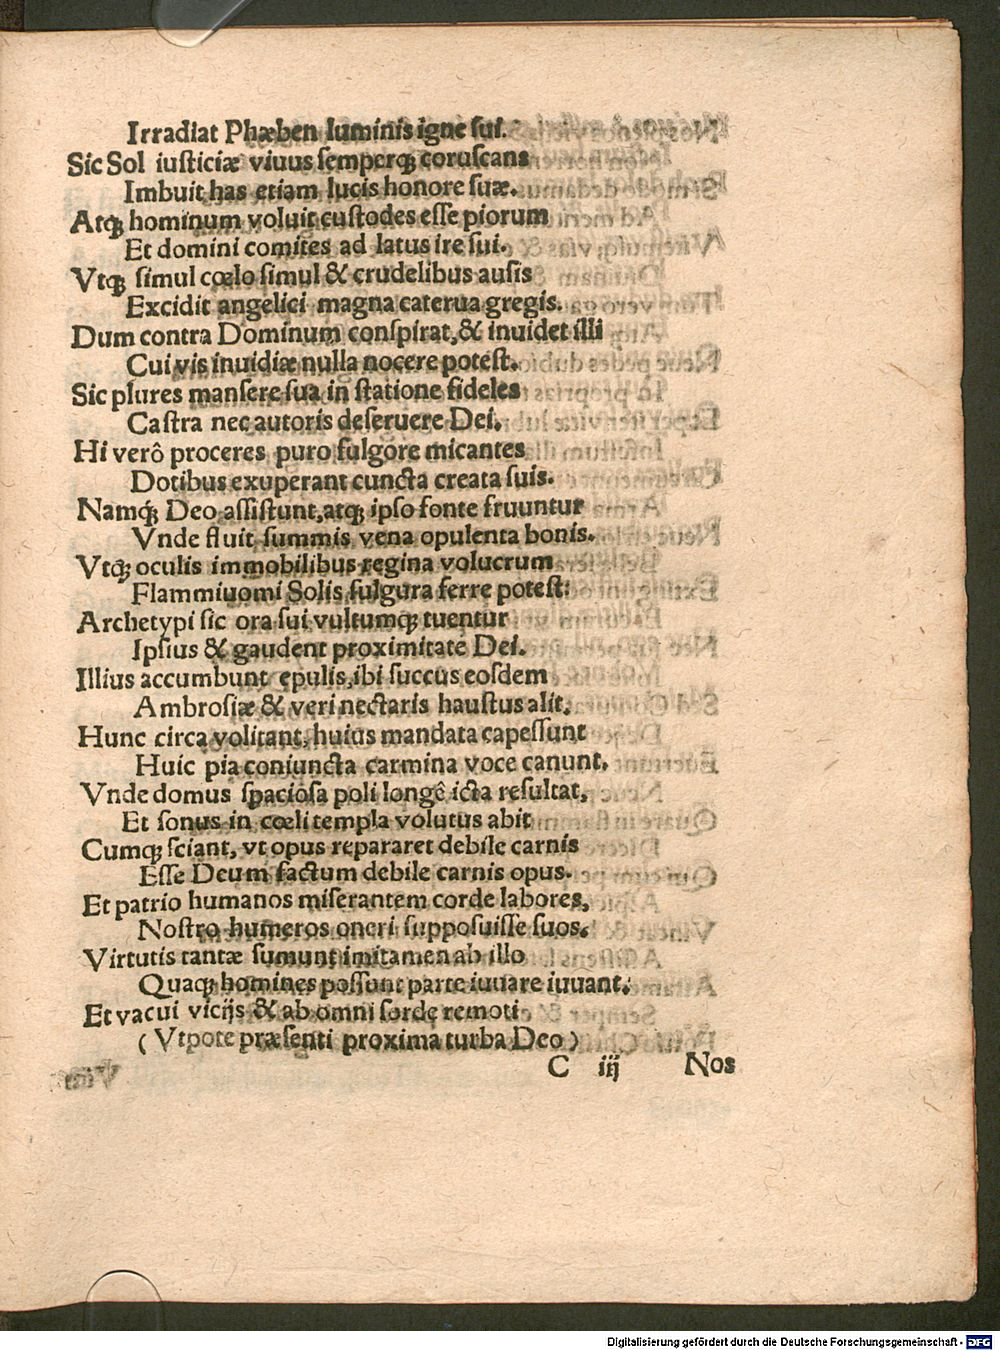 Irradiat Phæben luminis igne ſui.
Sic Sol iuſticiæ viuus ſemperqꝫ coruſcans
Imbuit has etiam lucis honore ſuæ.
Atqꝫ hominum voluit cuſtodes eſſe piorum
Et domini comites ad latus ire ſui.
Vtqꝫ ſimul cœlo ſimul & crudelibus auſis
Excidit angelici magna caterua gregis.
Dum contra Dominum conſpirat, & inuidet illi
Cui vis inuidiæ nulla nocere poteſt.
Sic plures manſere ſua in ſtatione fideles
Caſtra nec autoris deſeruere Dei.
Hi verô proceres puro fulgore micantes
Dotibus exuperant cuncta creata ſuis.
Namqꝫ Deo aſſiſtunt, atqꝫ ipſo fonte fruuntur
Vnde fluit ſummis vena opulenta bonis.
Vtqꝫ oculis immobilibus regina volucrum
Flammiuomi Solis fulgura ferre poteſt:
Archetypi ſic ora ſui vultumqꝫ tuentur
Ipſius & gaudent proximitate Dei.
Illius accumbunt epulis, ibi ſuccus eoſdem
Ambroſiæ & veri nectaris hauſtus alit.
Hunc circa volitant, huius mandata capeſſunt
Huic pia coniuncta carmina voce canunt.
Vnde domus ſpacioſa poli longê icta reſultat,
Et ſonus in cœli templa volutus abit
Cumqꝫ ſciant, vt opus repararet debile carnis
Eſſe Deum factum debile carnis opus.
Et patrio humanos miſerantem corde labores,
Noſtro humeros oneri ſuppoſuiſſe ſuos.
Virtutis tantæ ſumunt imitamen ab illo
Quaqꝫ homines poſſunt parte iuuare iuuant.
Et vacui vicijs & ab omni ſorde remoti
( Vtpote præſenti proxima turba Deo )
C iij Nos
Digitalisierung gefördert durch die Deutsche Forschungsgemeinschaft - DFG